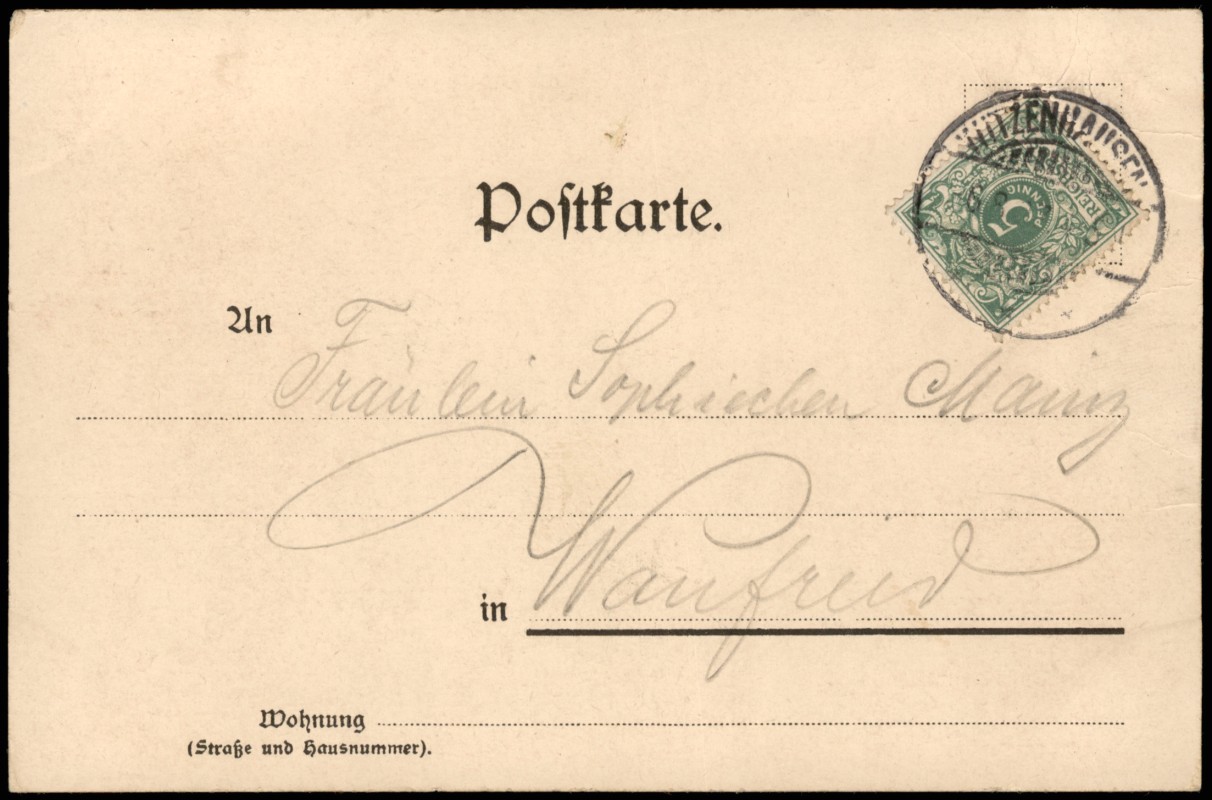 Postkarte.
WITZENHAUSEN
5
PFENNIG
REICHS
An
Fräulein Sophiechen Mainz
in Wanfried
Wohnung
(Straße und Hausnummer).